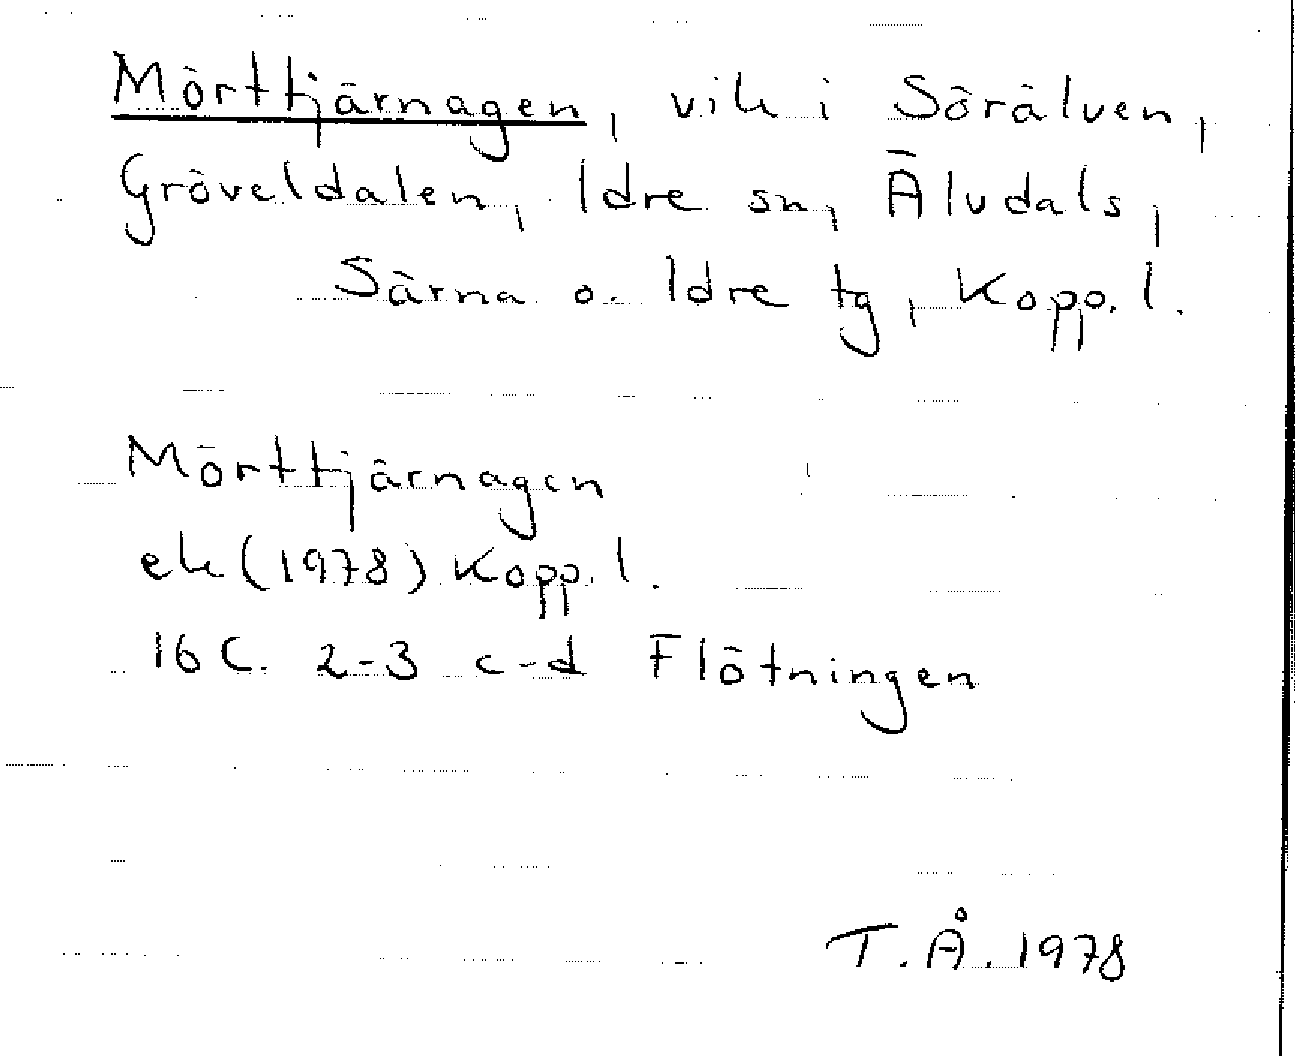 Mörttjärnagen, vik i Sörälven,
Gröveldalen, Idre sn, Älvdals,
Särna o. Idre tg, Kopp. l.
Mörttjärnagen
ek (1978) Kopp. l.
16 C. 2-3 c-d Flötningen
T. Å. 1978